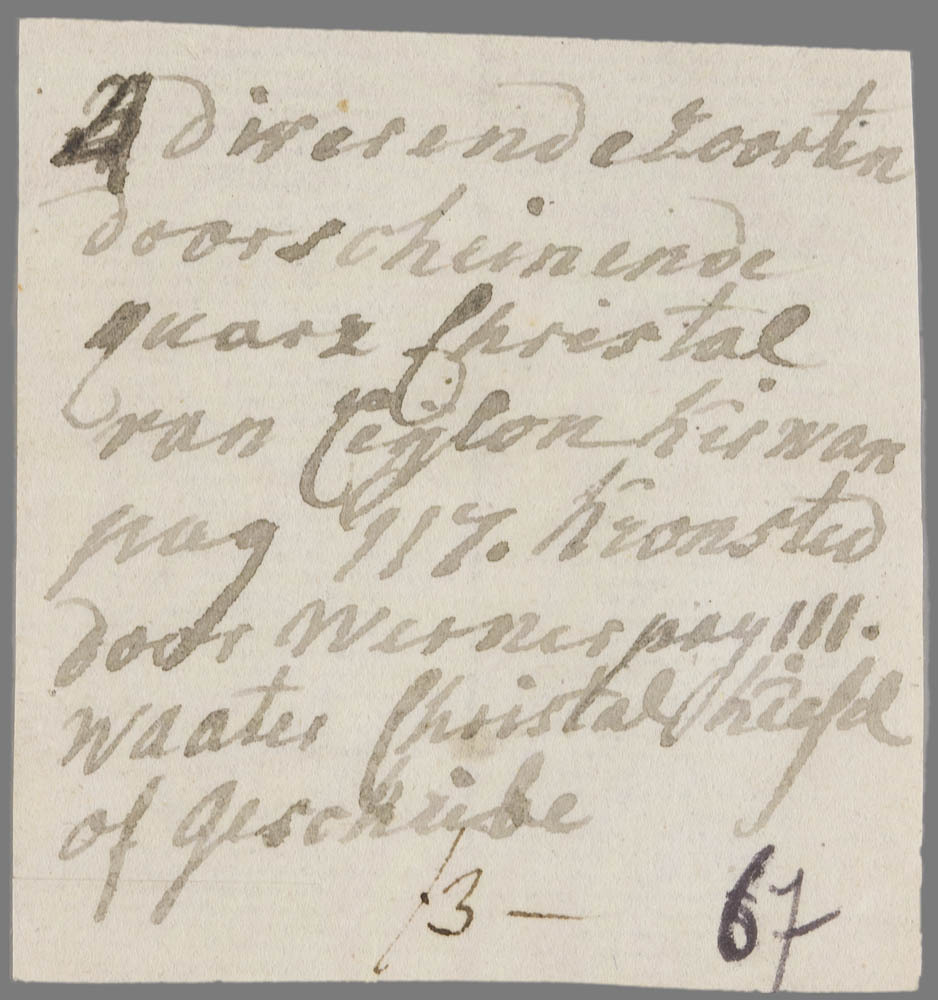 4 diverende zoorten
doorscheinende
quarz Christal
van Ceijlon Kirwan
pag 117. Kronsted
door Werner pag 111.
Waater Christal Khiesel
of Geschiibe
f3 —
67